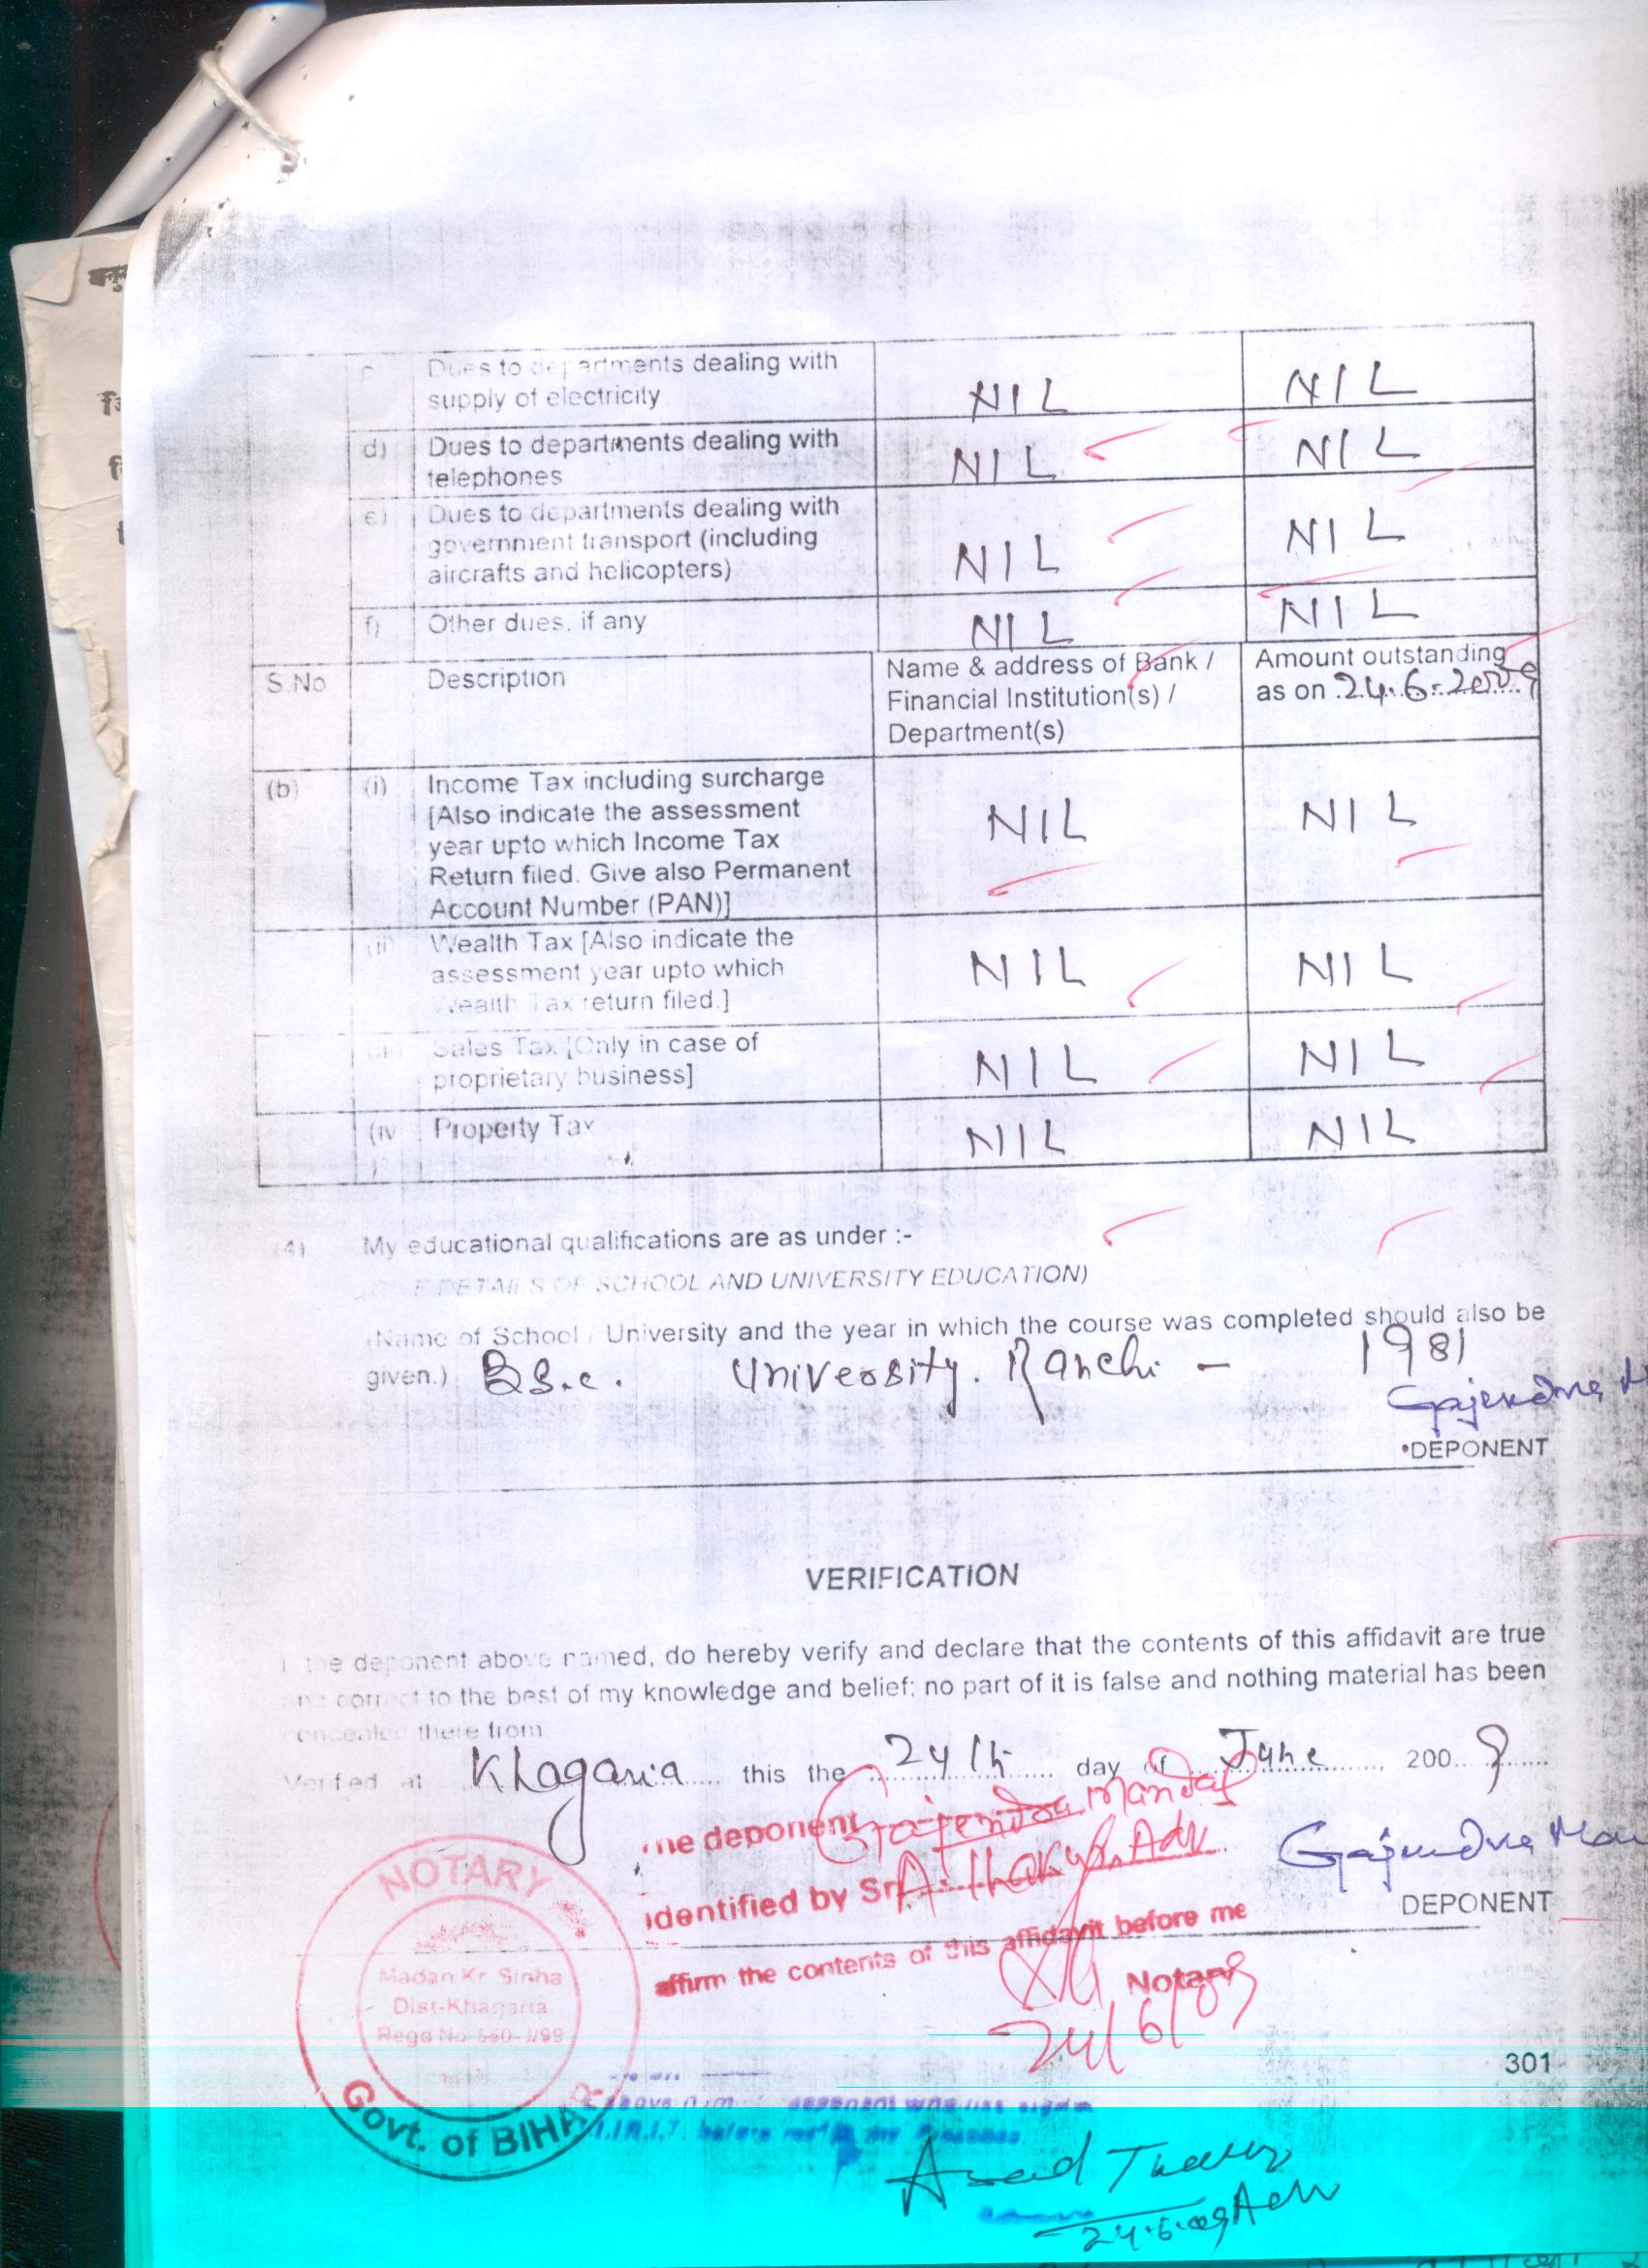 c Dues to departments dealing with
supply of electricity NIL NIL
d) Dues to departments dealing with
telephones NIL NIL
e) Dues to departments dealing with
government transport (including
aircrafts and helicopters) NIL NIL
f) Other dues, if any NIL NIL
S.No Description Name & address of Bank / Financial Institution(s) / Department(s) Amount outstanding as on 24.6.2009
(b) (i) Income Tax including surcharge
[Also indicate the assessment
year upto which Income Tax
Return filed. Give also Permanent
Account Number (PAN)] NIL NIL
(ii) Wealth Tax [Also indicate the
assessment year upto which
Wealth Tax return filed.] NIL NIL
(iii) Sales Tax [Only in case of
proprietary business] NIL NIL
(iv) Property Tax NIL NIL
(4) My educational qualifications are as under :-
DETAILS OF SCHOOL AND UNIVERSITY EDUCATION)
(Name of School / University and the year in which the course was completed should also be
given.) B.Sc. University. Ranchi - 1981
Gajendra
DEPONENT
VERIFICATION
I, the deponent above named, do hereby verify and declare that the contents of this affidavit are true
and correct to the best of my knowledge and belief; no part of it is false and nothing material has been
concealed there from.
Verified at Khagaria this the 24th day of June, 2009
The deponent Gajendra Mandal
identified by Sri A. Thakur, Adv
affirm the contents of this affidavit before me
Notary
24/6/09
Gajendra Man
DEPONENT
NOTARY
Madan Kr. Sinha
Dist-Khagaria
Govt. of BIHAR
301
24.6.09 Adv